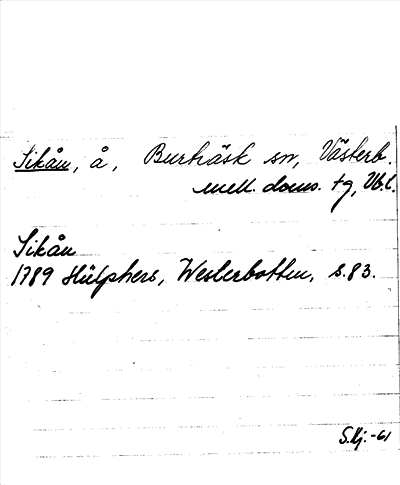 Sikån, å, Burträsk sn, Västerb.
mell. doms. tg, Vb.l.
Sikån
1789 Hülphers, Westerbotten, s. 83.
S.Hj. -61